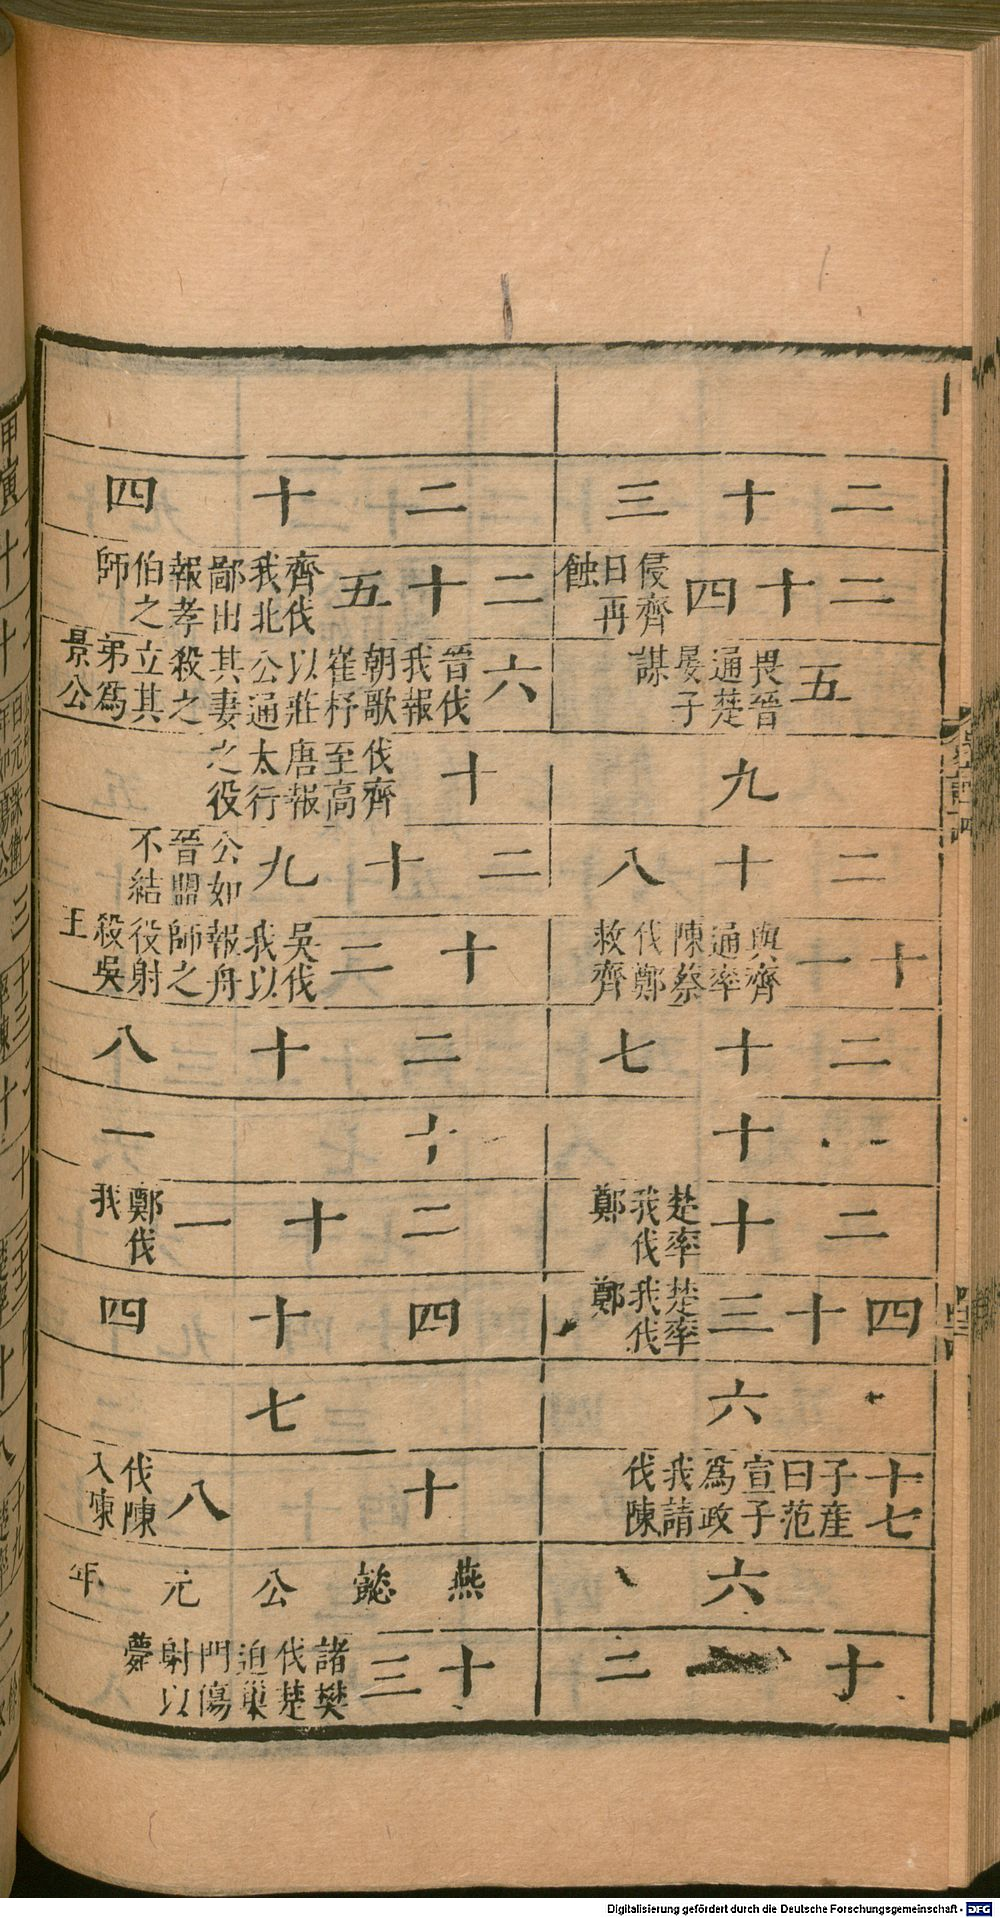 二十三
二十四 侵齊日再蝕
五 畏晉通楚晏子謀
九
二十八
十一 與齊通率陳蔡伐鄭救齊
二十七
十
二十 楚率我伐鄭
四十三 楚率我伐鄭
六
十七 子産曰范宣子爲政我請伐陳
六
十二
二十四
二十五 齊伐我北鄙出報孝伯之師
六 晉伐我報朝歌崔杼以莊公通其妻殺之立其弟爲景公
十 伐齊至高唐報太行之役
二十九 公如晉盟不結
十二 吳伐我以報舟師之役射殺吳王
二十八
十一
二十一 鄭伐我
四十四
七
十八 伐陳入陳
燕懿公元年
十三 諸樊伐楚迫巢門傷射以薨
甲寅
Digitalisierung gefördert durch die Deutsche Forschungsgemeinschaft - DFG